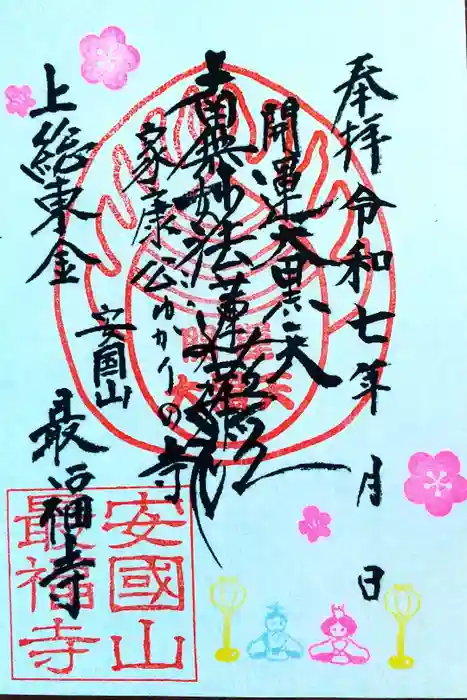 奉拝 令和七年 月 日
開運大黒天
南無妙法蓮華経
家康公ゆかりの寺
安国山
上総東金 最福寺
安國山
最福寺